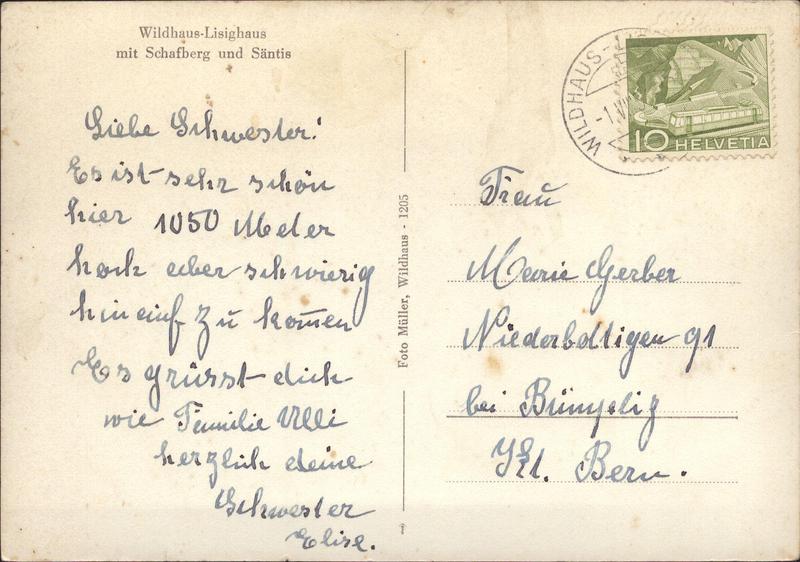 Wildhaus-Lisighaus
mit Schafberg und Säntis
Liebe Schwester!
Es ist sehr schön
hier 1050 Meter
hoch aber schwierig
hinauf zu kommen
Es grüsst dich
wie Familie Ulli
herzlich deine
Schwester
Elise.
Foto Müller, Wildhaus - 1205
WILDHAUS-
-1.
10 HELVETIA
Frau
Marie Gerber
Niederbottigen 91
bei Bümpliz
Kt. Bern.